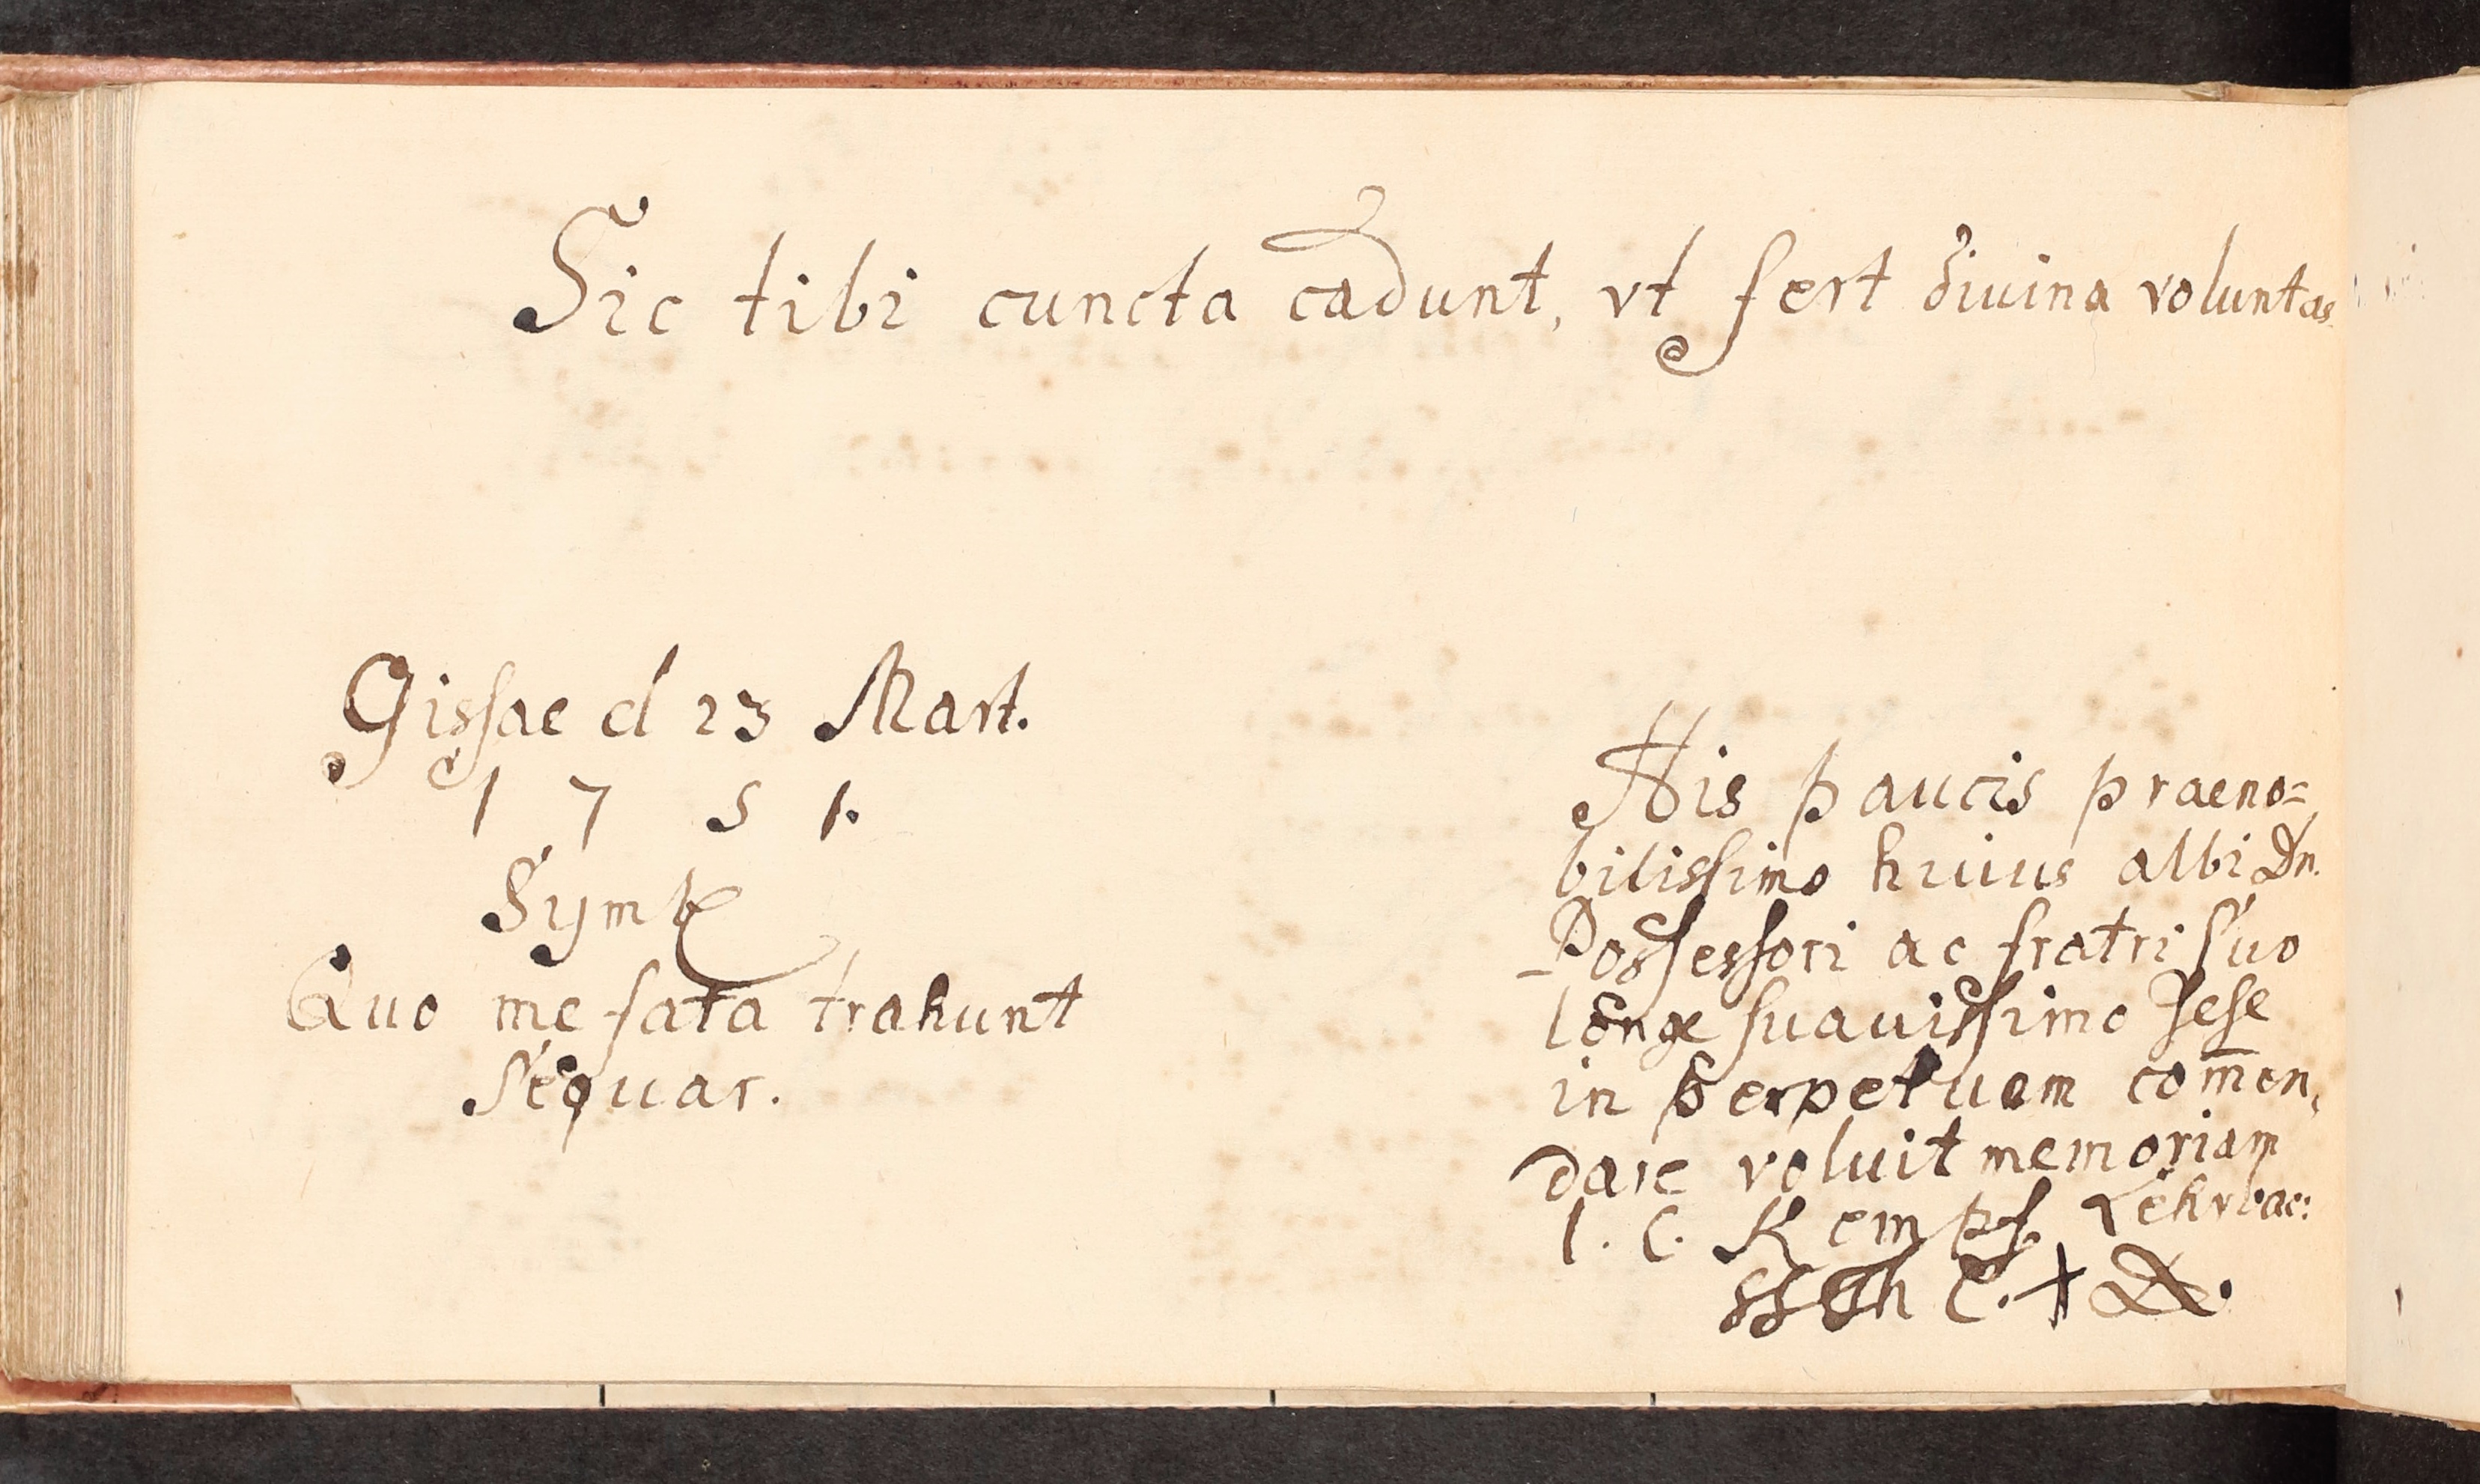 Sic tibi cuncta cadunt, vt fert diuina voluntas
Gissae d 23 Mart.
1 7 5 1.
Symb
Quo me fata trahunt
Sequar.
His paucis praeno=
bilissimo huius albi Dn.
Possessori ac fratri suo
longe suauissimo sese
in perpetuam com̄en,
dare voluit memoriam
I. C. Kempf. Lehrbac: